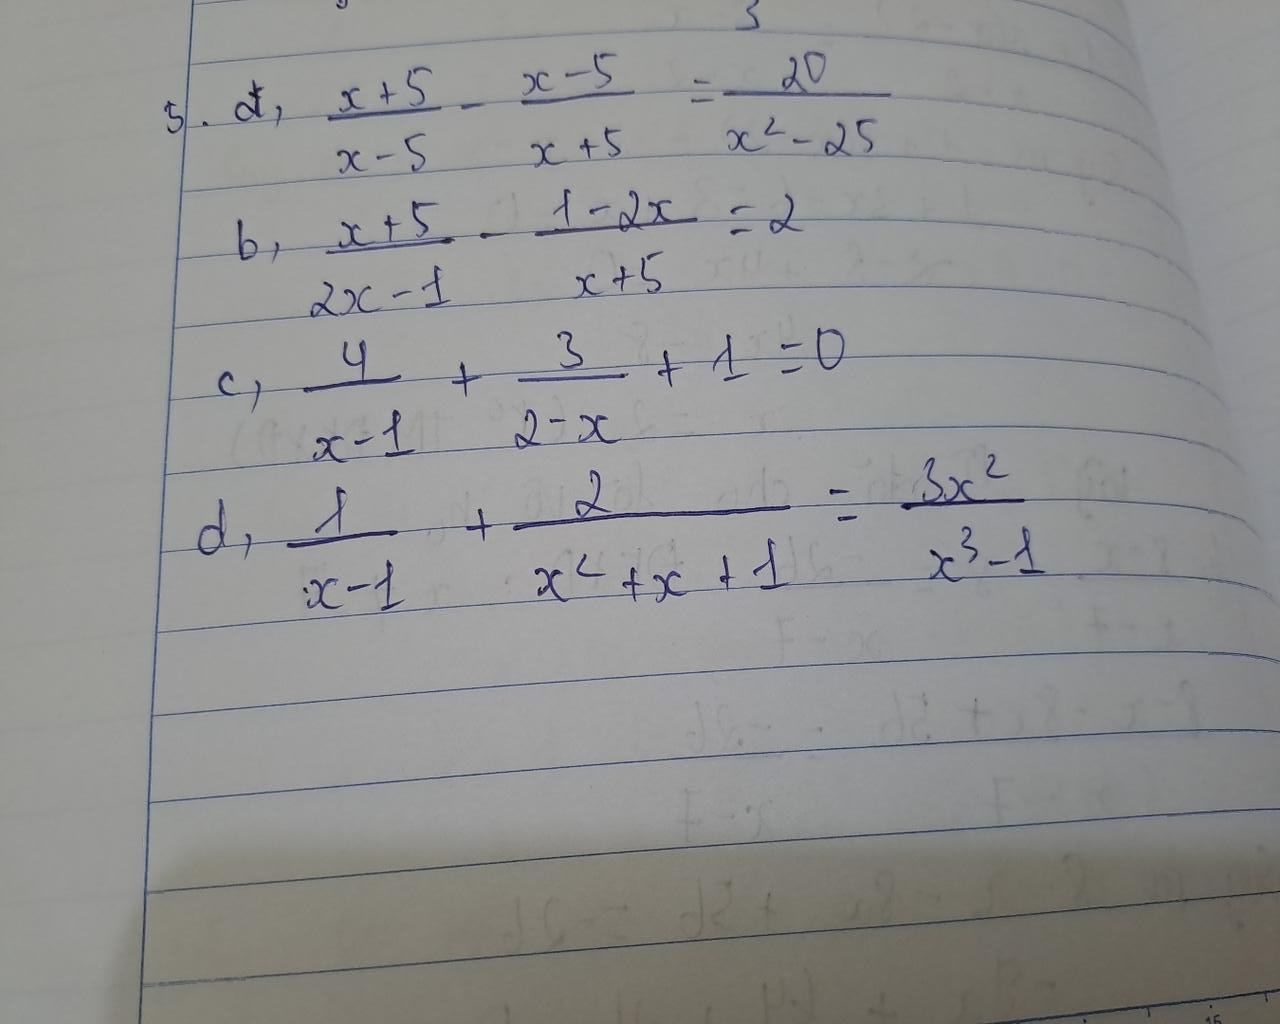 3
5. a, (x+5)/(x-5) - (x-5)/(x+5) = 20/(x²-25)
b, (x+5)/(2x-1) - (1-2x)/(x+5) = 2
c, 4/(x-1) + 3/(2-x) + 1 = 0
d, 1/(x-1) + 2/(x²+x+1) = 3x²/(x³-1)
15